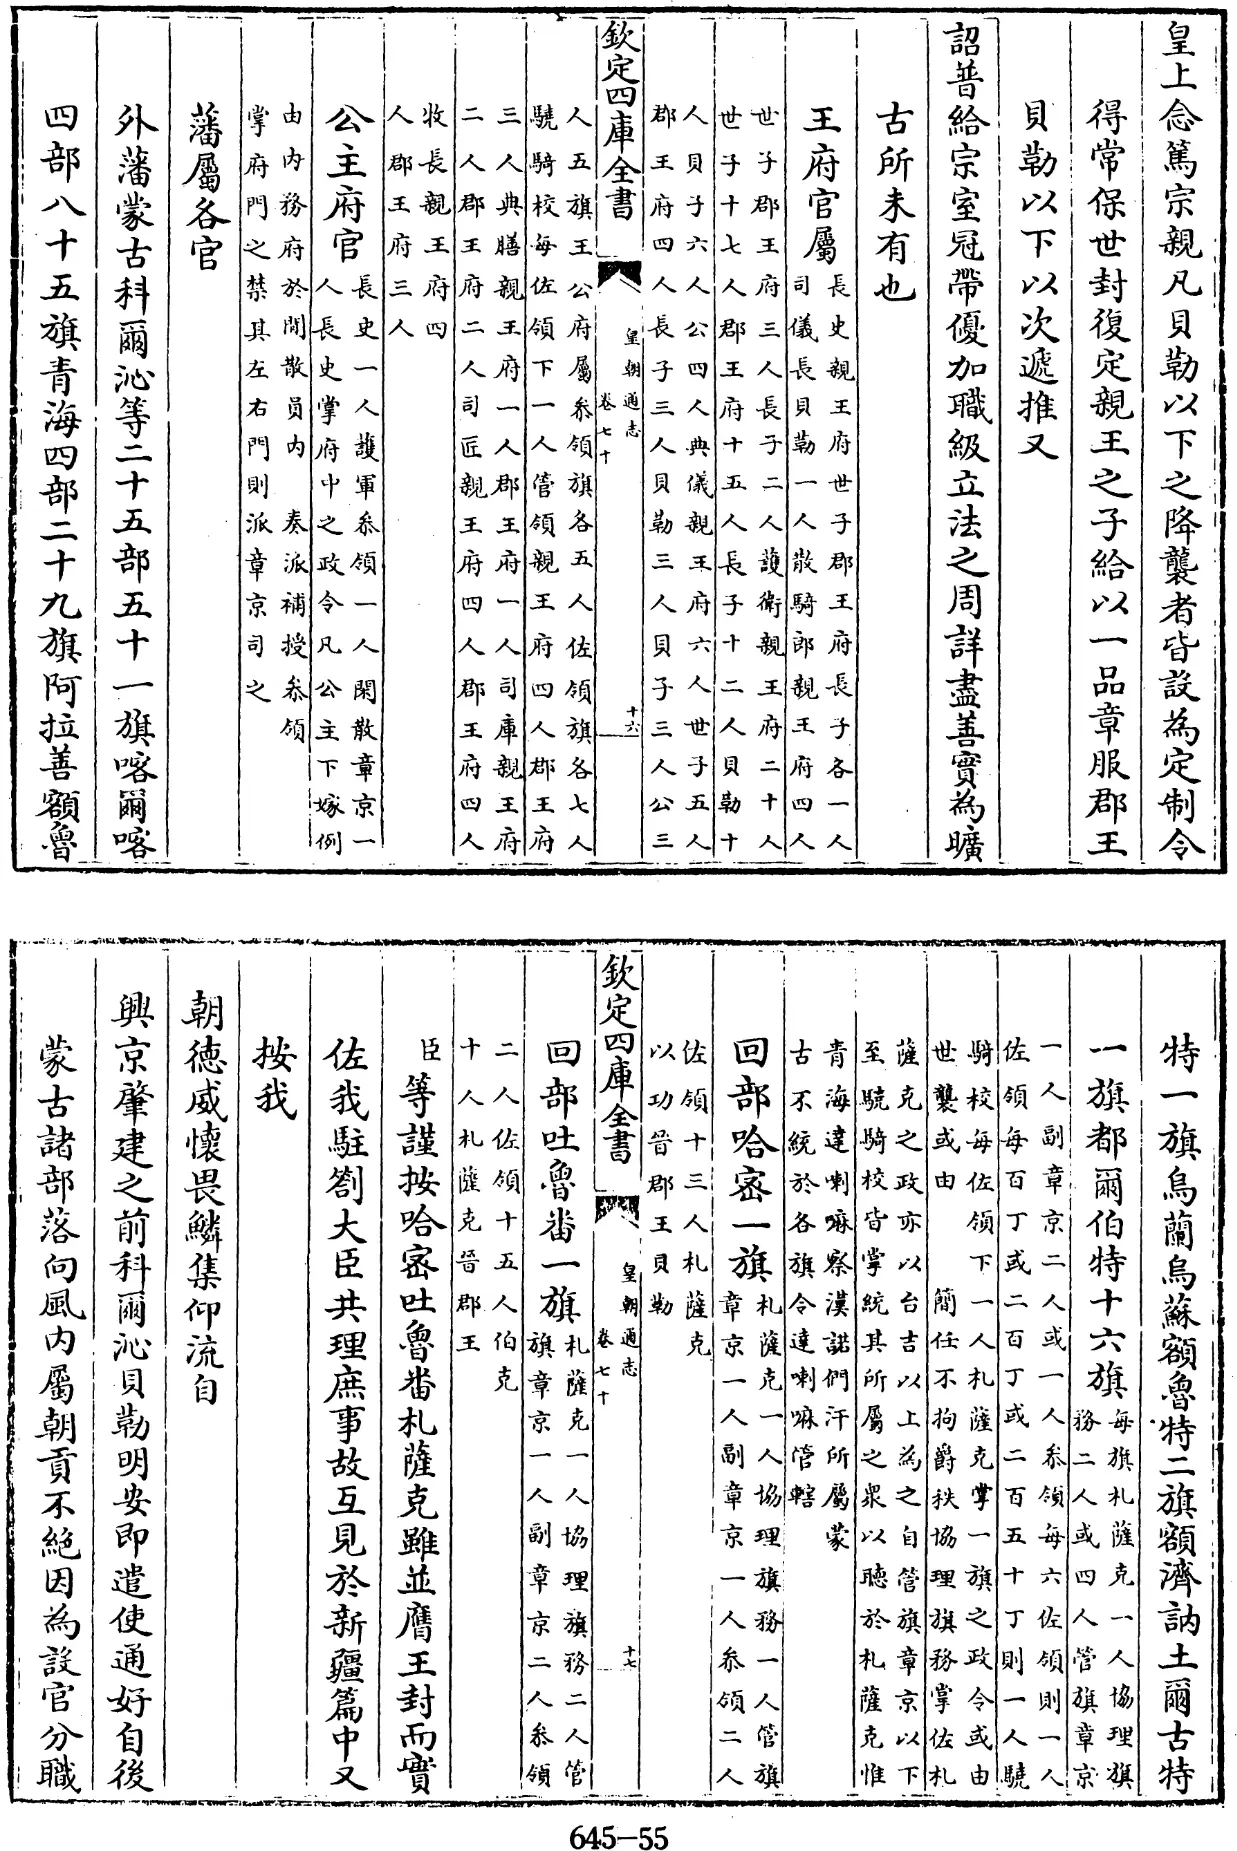 皇上念篤宗親凡貝勒以下之降襲者皆設為定制令
得常保世封復定親王之子給以一品章服郡王
貝勒以下以次遞推又
詔普給宗室冠帶優加職級立法之周詳盡善實為曠
古所未有也
王府官屬
長史親王府世子郡王府長子各一人
司儀長貝勒一人散騎郎親王府四人
世子郡王府三人長子二人護衛親王府二十人
世子十七人郡王府十五人長子十二人貝勒十
人貝子六人公四人典儀親王府六人世子五人
郡王府四人長子三人貝勒三人貝子三人公三
欽定四庫全書
皇朝通志
卷七十
十六
人五旗王公府屬叅領旗各五人佐領旗各七人
驍騎校每佐領下一人管領親王府四人郡王府
三人典膳親王府一人郡王府一人司庫親王府
二人郡王府二人司匠親王府四人郡王府四人
牧長親王府四
人郡王府三人
公主府官
長史一人護軍叅領一人閑散章京一
人長史掌府中之政令凡公主下嫁例
由内務府於閒散員内 奏派補授叅領
掌府門之禁其左右門則派章京司之
藩屬各官
外藩蒙古科爾沁等二十五部五十一旗喀爾喀
四部八十五旗青海四部二十九旗阿拉善額魯
特一旗烏蘭烏蘇額魯特二旗額濟訥土爾古特
一旗都爾伯特十六旗
每旗札薩克一人協理旗
務二人或四人管旗章京
一人副章京二人或一人叅領每六佐領則一人
佐領每百丁或二百丁或二百五十丁則一人驍
騎校每佐領下一人札薩克掌一旗之政令或由
世襲或由 簡任不拘爵秩協理旗務掌佐札
薩克之政亦以台吉以上為之自管旗章京以下
至驍騎校皆掌統其所屬之衆以聽於札薩克惟
青海達喇嘛察漢諾們汗所屬蒙
古不統於各旗令達喇嘛管轄
回部哈密一旗
札薩克一人協理旗務一人管旗
章京一人副章京一人叅領二人
佐領十三人札薩克
以功晉郡王貝勒
欽定四庫全書
皇朝通志
卷七十
十七
回部吐魯番一旗
札薩克一人協理旗務二人管
旗章京一人副章京二人叅領
二人佐領十五人伯克
十人札薩克晉郡王
臣等謹按哈密吐魯番札薩克雖並膺王封而實
佐我駐劄大臣共理庶事故互見於新疆篇中又
按我
朝德威懷畏鱗集仰流自
興京肇建之前科爾沁貝勒明安即遣使通好自後
蒙古諸部落向風内屬朝貢不絕因為設官分職
645-55